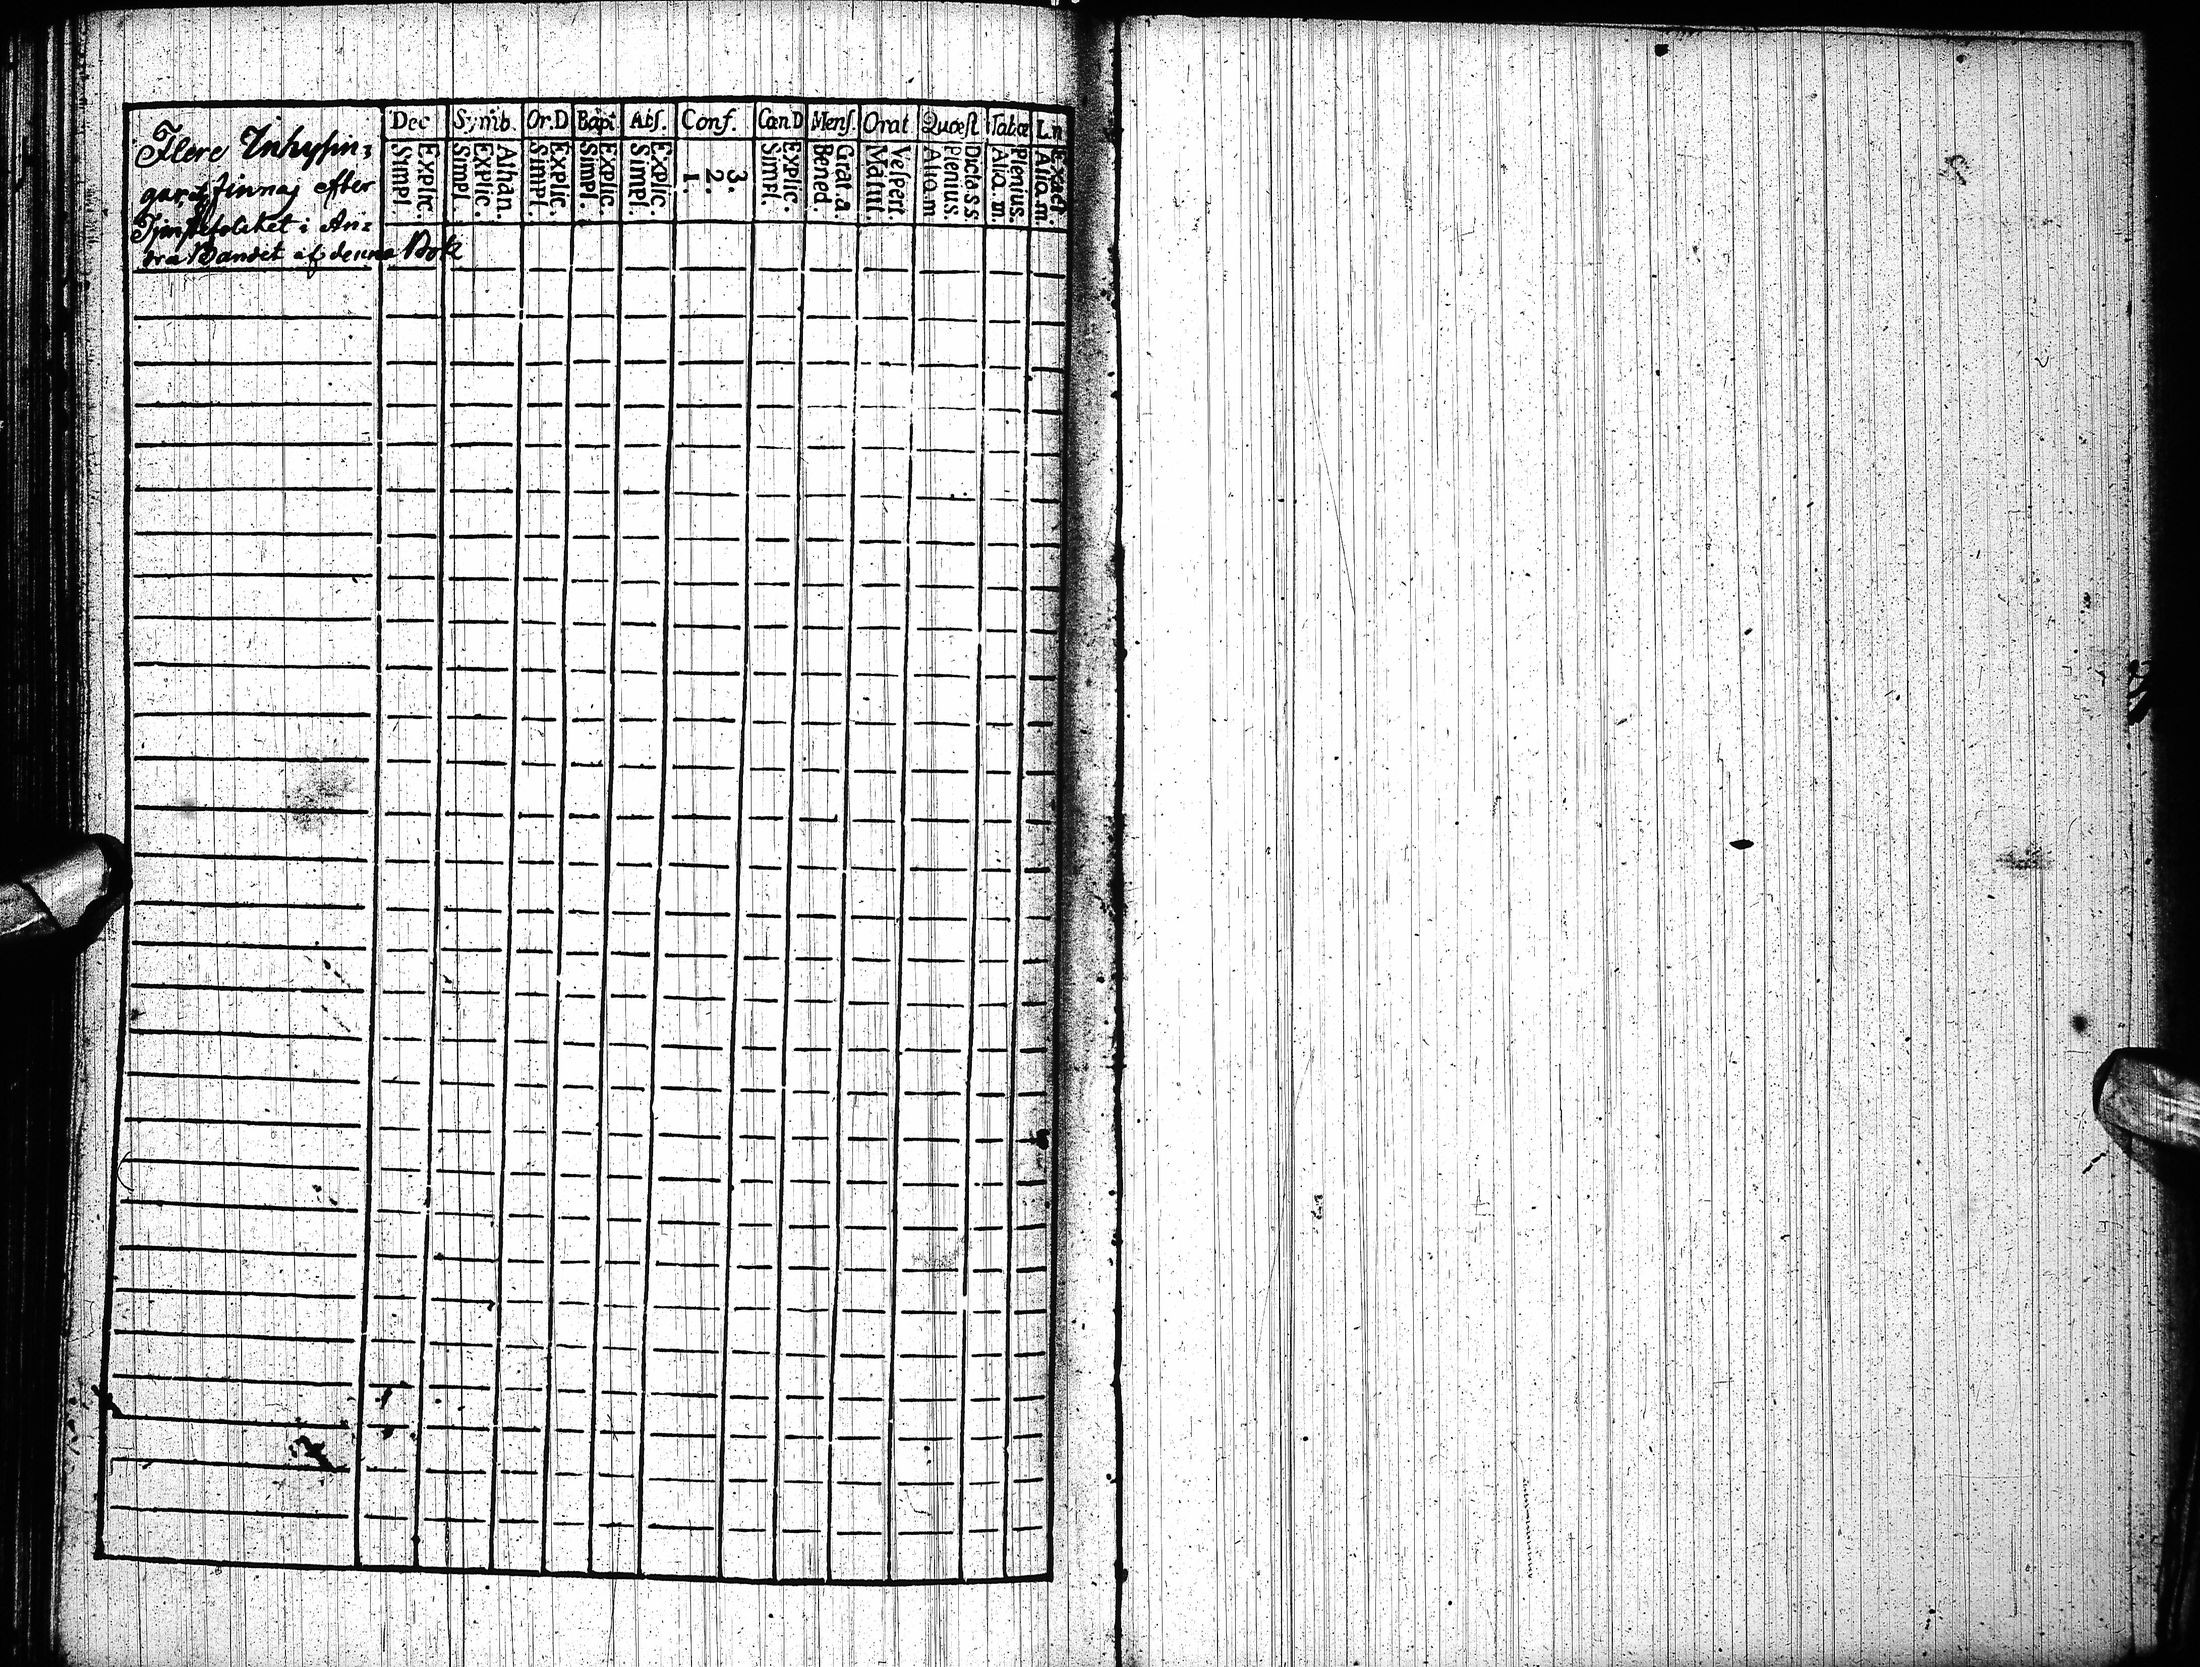 Flere Inhysin=
gar, finnas efter
Tjenstefolcket i An=
dra Bandet af denna Bok
Dec Symb. Or.D Bapt Abſ. Conf. CœnD Menſ. Orat Quæſt Tabæ L.n
Explic.
Simpl.
Athan.
Explic.
Simpl.
Explic.
Simpl.
Explic.
Simpl.
Explic.
Simpl.
3.
2.
1.
Explic.
Simpl.
Grat. a.
Bened.
Veſpert.
Matut.
Dicta s.s
Plenius.
Alia.m
Plenius.
Alia.m.
Exact.
Alia.m.